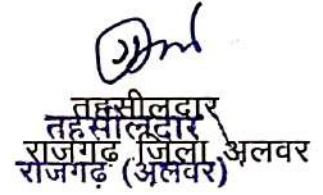 तहसीलदार
तहसीलदार
राजगढ़ जिला अलवर
राजगढ़ (अलवर)